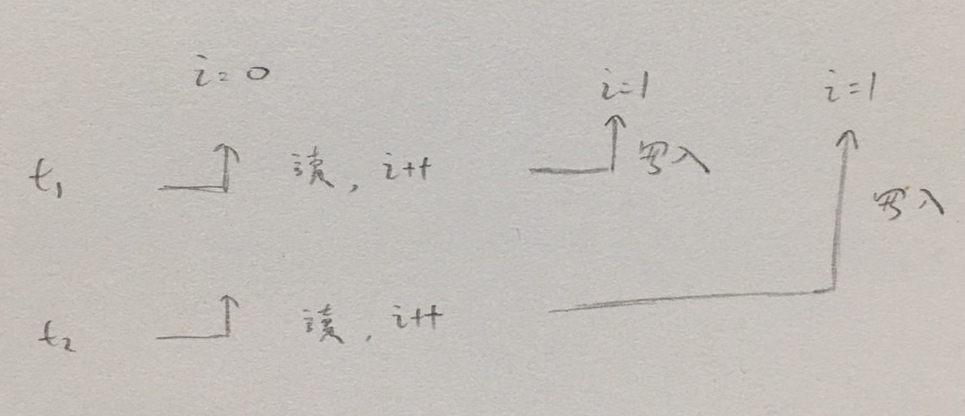 i=0 i=1 i=1
t₁ 读, i++ 写入
写入
t₂ 读, i++